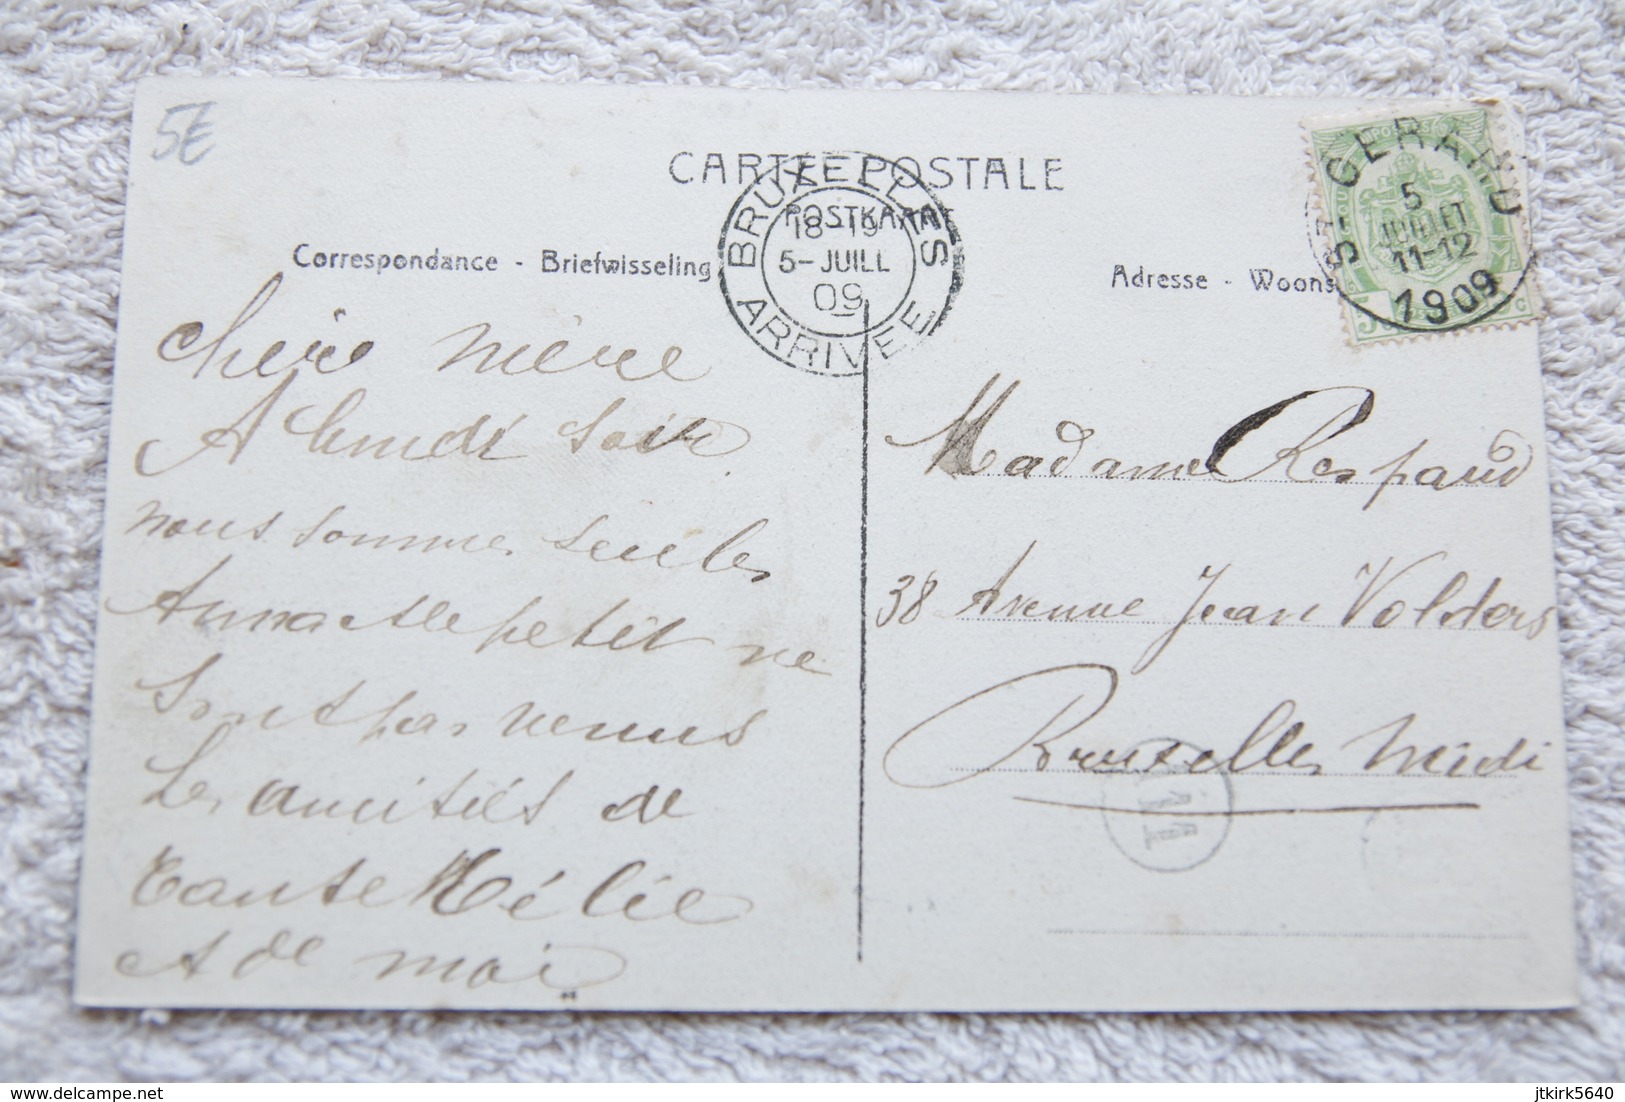 5E
CARTE POSTALE
POSTKAART
Correspondance - Briefwisseling
Adresse - Woons
BRUXELLES
18-19
5-JUILL
09
ARRIVEE
ST-GERARD
5
JUILLET
11-12
1909
Chère Mère
A lundi soir
nous sommes seules
Anna et le petit ne
sont pas venus
Les amitiés de
Tante Mélie
et de moi
Madame Respaud
38 Avenue Jean Volders
Bruxelles Midi
delcampe.net
jtkirk5640